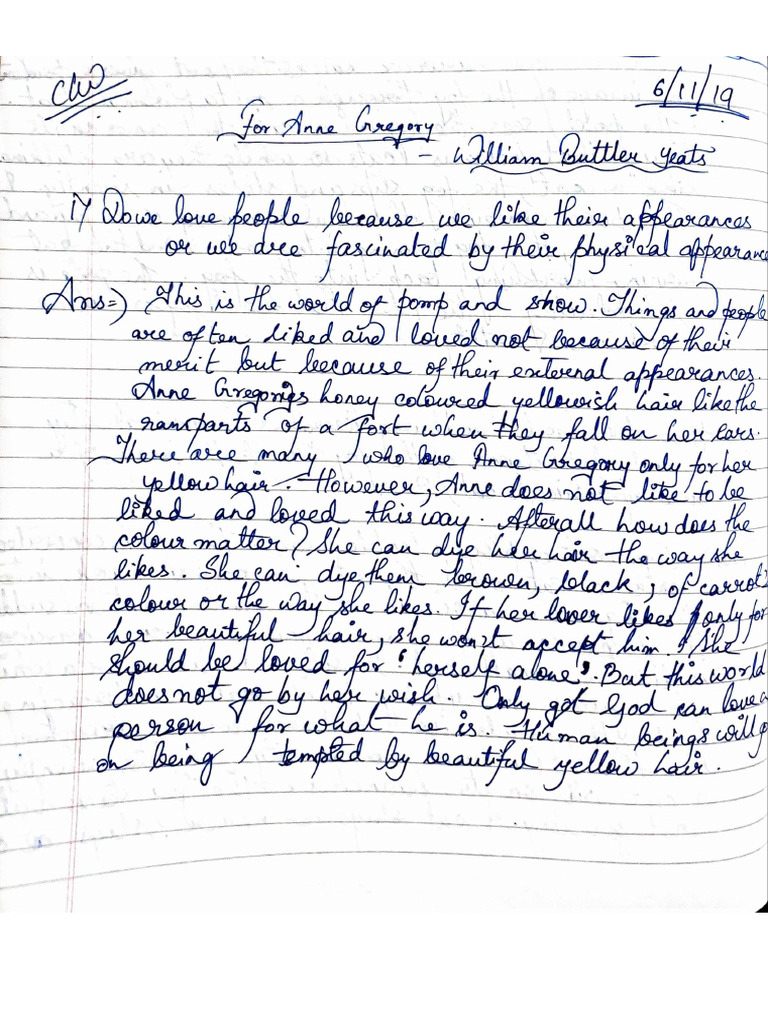 CW
6/11/19
For Anne Gregory
- William Buttler Yeats
1) Do we love people because we like their appearances
or we are fascinated by their physical appearance
Ans=) This is the world of pomp and show. Things and people
are often liked and loved not because of their
merit but because of their external appearances.
Anne Gregory's honey coloured yellowish hair like the
ramparts of a fort when they fall on her ears.
There are many who love Anne Gregory only for her
yellow hair. However, Anne does not like to be
liked and loved this way. Afterall how does the
colour matter? She can dye her hair the way she
likes. She can dye them brown, black, of carrot's
colour or the way she likes. If her lover likes only for
her beautiful hair, she won't accept him. She
should be loved for 'herself alone'. But this world
does not go by her wish. Only got God can love a
person for what he is. Human beings will go
on being tempted by beautiful yellow hair.